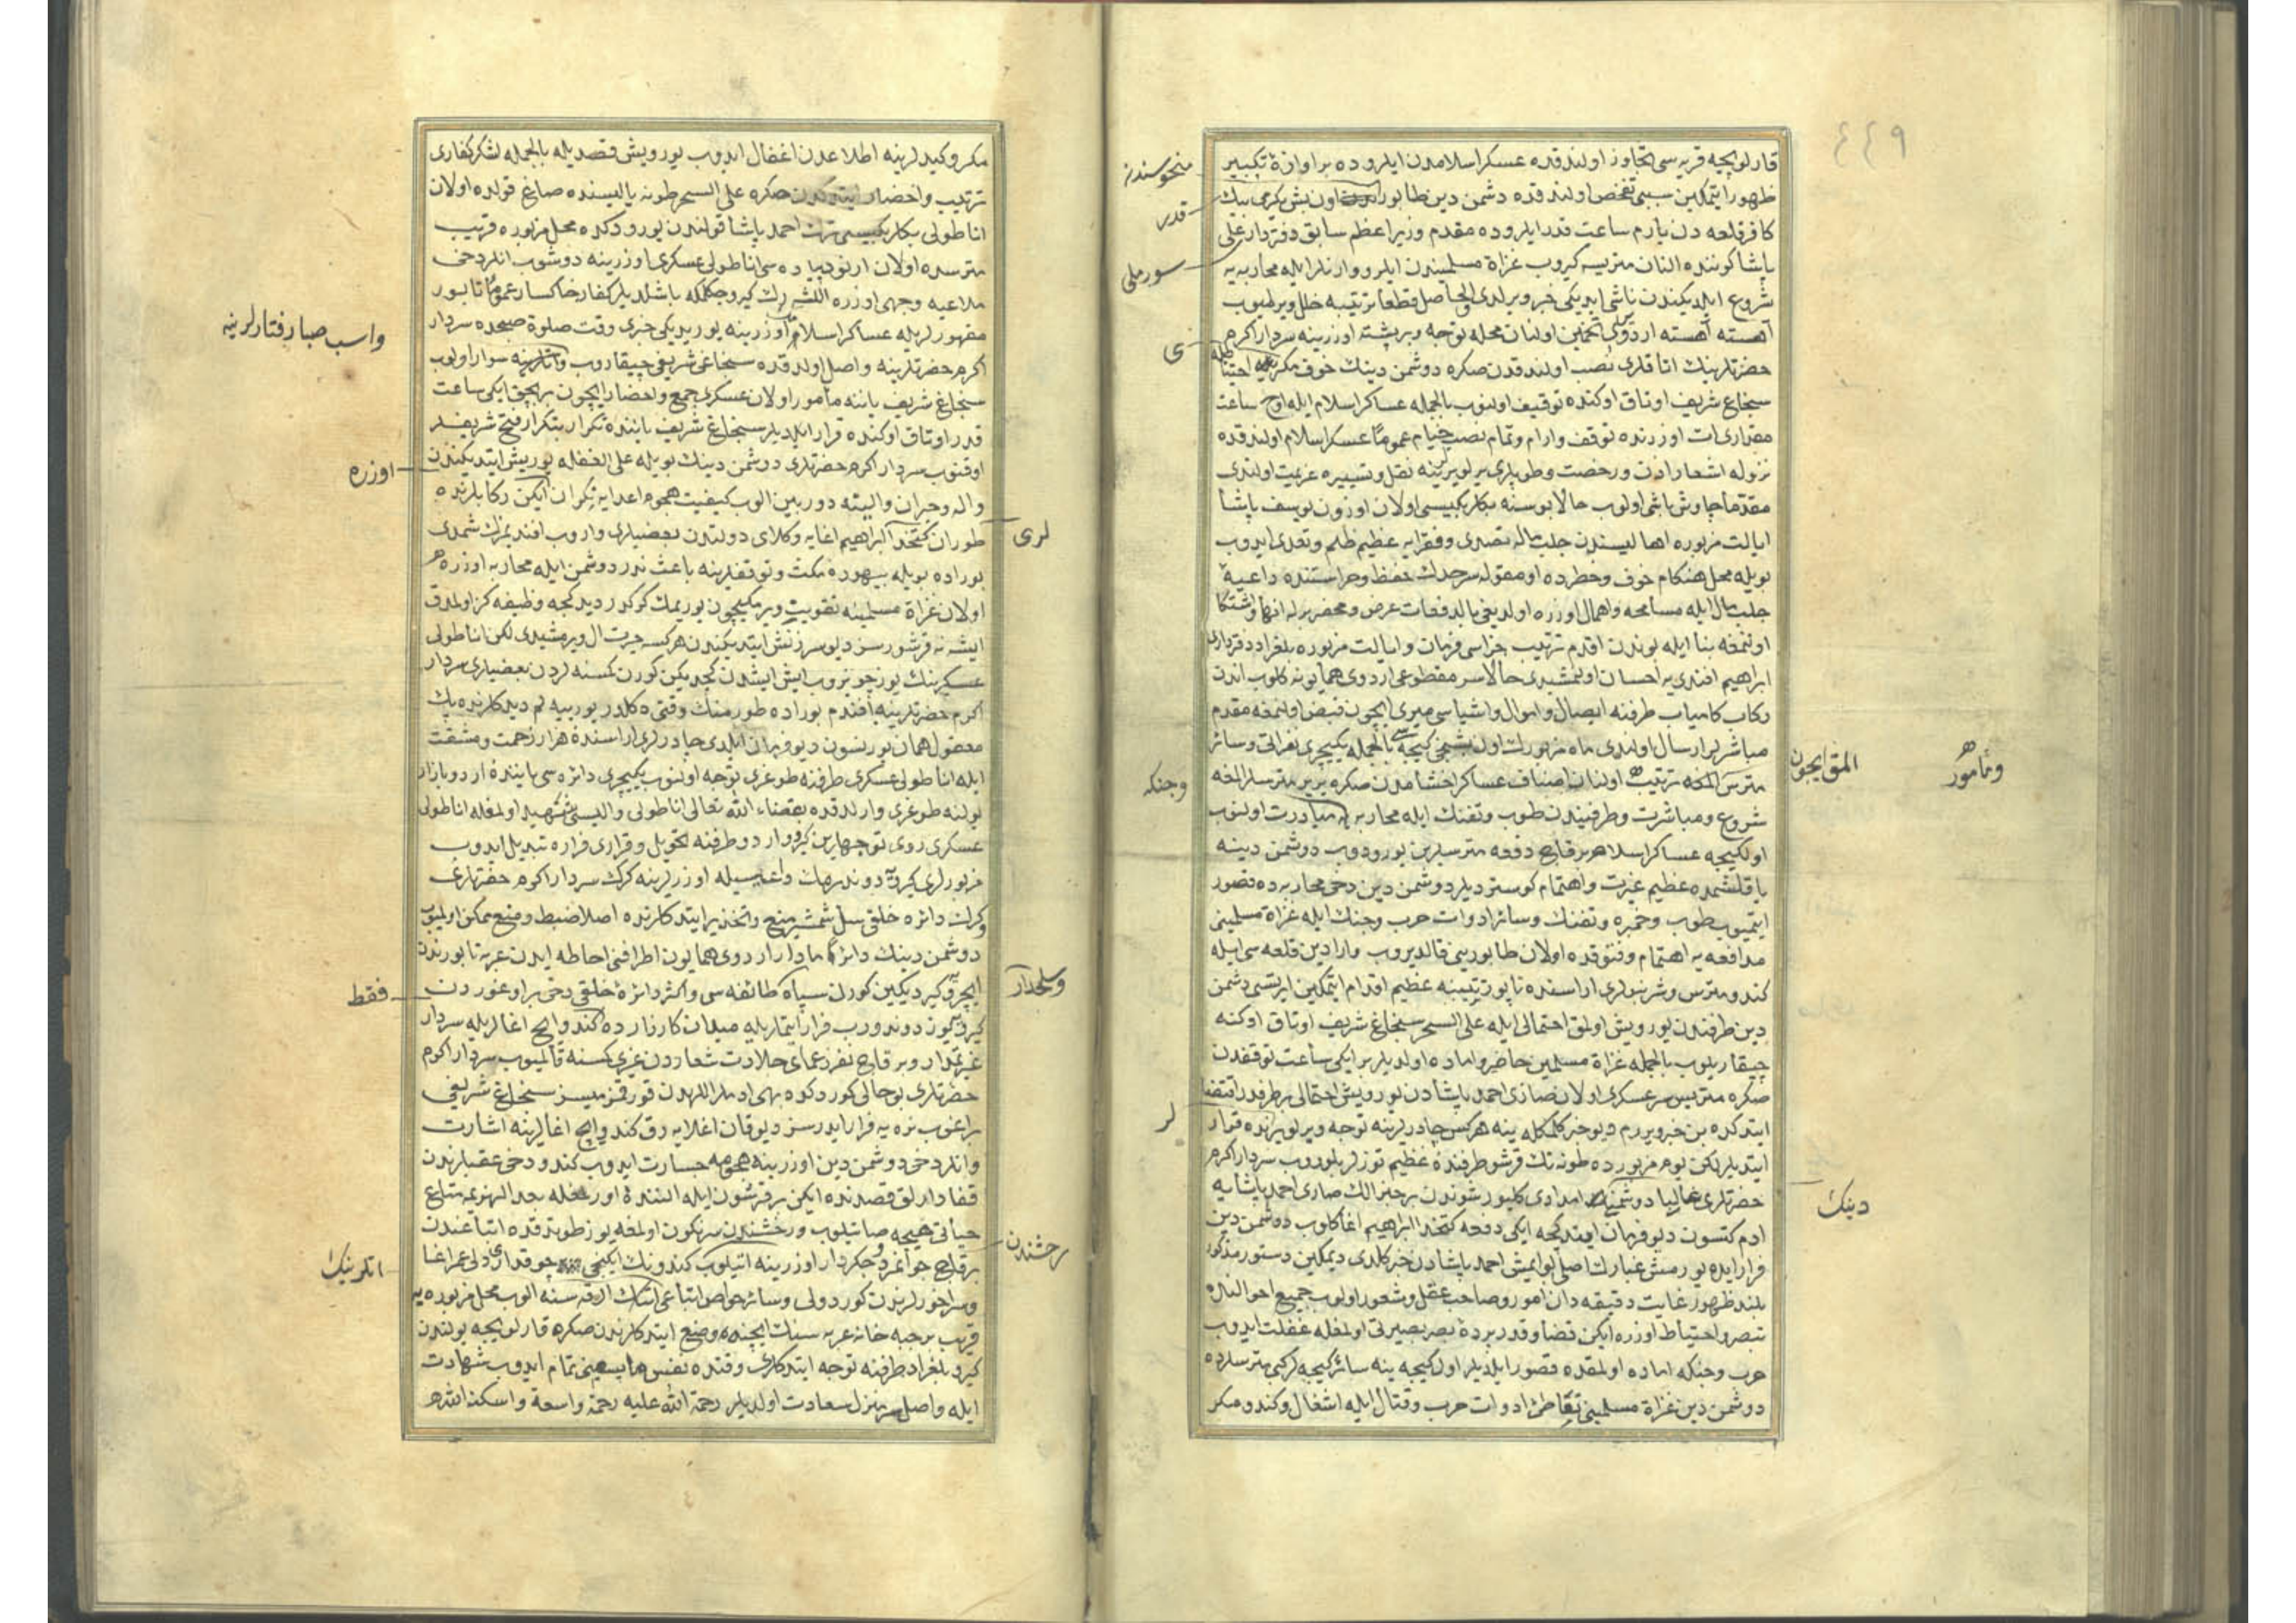 ٤٤٩
قارلویچه قریه‌سی تجاوز اولندقده عسکر اسلامدن ایلروده بر اوازهٔ تکبیر
ظهور ایتمکین سببی تفحص اولندقده دشمن دین طابور اون بش یکرمی بیك
کافر قلعه دن یارم ساعت قدر ایلروده مقدم وزیر اعظم سابق دفتردار علی
پاشا کوننده النان متریسه کیروب غزاة مسلمیندن ایلرو وارنلر ایله محاربه‌یه
شروع ایلدیکندن ناشی ایدیکی خبر ویرلدی الحاصل قطعا ترتیبه خلل ویرلمیوب
آهسته آهسته اردو تخمین اولنان محله توجه و بر پشته اوزرینه سردار اکرم
حضرتلرینك اتاقلری نصب اولندقدن صکره دوشمن دینك خوف مکر
سنجاغ شریف اوتاق اوکنده توقیف اولنوب بالجمله عساکر اسلام ایله اوچ ساعت
مقداری ات اوزرنده توقف وارام وتمام نصب خیام عموما عسکر اسلام اولندقده
نزوله اشعار اذن ورخصت وطوپلری یرلو یرلرینه نقل وتسییره عزیمت اولندی
مقدما چاوش باشی اولوب حالا بوسنه بکلربکیسی اولان اوزون یوسف پاشا
ایالت مزبوره اهالیسندن جلب ماله تصدی وفقرایه عظیم ظلم وتعدی ایدوب
بویله محل هنکام خوف وخطرده اومقوله سرحدك حفظ وحراستنده داعیهٔ
جلب مال ایله مسامحه واهمال اوزره اولدیغی بالدفعات عرض ومحضرلرله انها واشتکا
اولنمغه بنا ایله بوندن اقدم ترتیب جزاسی فرمان وایالت مزبوره بلغراد دفترداری
ابراهیم افندی یه احسان اولنمشیدی حالا سر مقطوعی اردوی همایونه کلوب اندن
رکاب کامیاب طرفنه ایصال واموال واشیاسی میری ایچون قبض اولنمغه مقدم
مباشرلر ارسال اولندی ماه مزبورك اون بشنجی کیجه‌سی بالجمله یکیچری نفراتی وسائر
متریس المغه ترتیب اولنان اصناف عساکر اخشامدن صکره یر یر متریسلر المغه
شروع ومباشرت وطرفیندن طوپ وتفنك ایله محاربه یه مبادرت اولنوب
اولکیجه عساکر اسلام بر قاچ دفعه متریسلردن یورودوب دوشمن دینه
یاقلشمده عظیم غیرت واهتمام کوستردیلر دوشمن دین دخی محاربه ده قصور
ایتمیوب طوپ وخمبره وتفنك وسائر ادوات حرب وجنك ایله غزاة مسلمینی
مدافعه یه اهتمام وفتوقده اولان طابورینی قالدیروب وارادین قلعه‌سی ایله
کندو متریس وشرنپولری اراسنده تابور ترتیبنه عظیم اقدام ایتمکین ایرتسی دشمن
دین طرفندن یورویش اولمق احتمالی ایله علی السحر سنجاغ شریف اوتاق اوکنه
چیقاریلوب بالجمله غزاة مسلمین حاضر واماده اولدیلر بر ایکی ساعت توقفدن
صکره متریس سرعسکری اولان صاری احمد پاشادن یورویش احتمالی برطرفدر اقتضا
ایتدکده بن خبر ویررم دیو خبر کلمکله ینه هرکس چادرلرینه توجه ویرلو یرنده قرار
ایتدیلر لکن یوم مزبورده طونه نك قرشو طرفنده عظیم توزلر بلوروب سردار اکرم
حضرتلری غالبا دوشمن امدادی کلیور شوندن بر خبر الك صاری احمد پاشایه
ادم کتسون دیو فرمان ایدنجه ایکی دفعه کتخدا ابراهیم اغا کلوب دوشمن دین
فرار ایده یورمش غبارك اصلی بوایمش احمد پاشادن خبر کلدی دیمکین دستور مذکور
بلند ظهور غایت دقیقه‌دان امور وصاحب عقل وشعور اولوب جمیع احوالنده
تبصر واحتیاط اوزره ایکن قضا وقدر پردهٔ بصر بصیرتی اولمغله غفلت ایدوب
حرب وجنکه اماده اولمقده قصور ایلدیلر اول کیجه ینه سائر کیجه لر کبی متریسلرده
دوشمن دین غزاة مسلمینی تقاطر ادوات حرب وقتال ایله اشغال وکندو مکر
منحوسندن
قدر
سورملی
ی
وجنکه
المق ایچون
ومأمور
لر
دینك
مکر وکیدلرینه اطلاعدن اغفال ایدوب یورویش قصدیله بالجمله لشکر کفاری
ترتیب واحضار ایتدوکدن صکره علی السحر طونه یالیسنده صاغ قولده اولان
اناطولی بکلربکیسی ترك احمد پاشا قولندن یورودکده محل مزبوره قریب
متریسده اولان ارنود پیاده‌سی اناطولی عسکری اوزرینه دوشوب انلر دخی
ملاعبه وجهی اوزره الشه رك کیرو چکلمکه باشلدیلر کفار خاکسار عموما تابور
مقهورلریله عساکر اسلام اوزرینه یوریدیکی خبری وقت صلوة صبحده سردار
اکرم حضرتلرینه واصل اولدقده سنجاغی شریفی چیقاروب سوار اولوب
سنجاغ شریف یاننه مأمور اولان عسکری جمع واحضار ایچون بر بچق ایکی ساعت
قدر اوتاق اوکنده قرار ایلدیلر سنجاغ شریف یاننده تکرار بتکرار فتح شریفلر
اوقنوب سردار اکرم حضرتلری دوشمن دینك بویله علی الغفله یوریش ایتدیکندن
واله وحیران والبته دوربین الوب کیفیت هجوم اعدایه نکران ایکن رکابلرنده
طوران کتخدا ابراهیم اغایه وکلای دولتدن بعضیلری واروب افندیمزك شمدی
بوراده بویله بیهوده مکث وتوقفلرینه باعث ندر دوشمن ایله محاربه اوزره
اولان غزاة مسلمینه تقویت ویرمکیچون یوریمك کرکدر دیدکجه وظیفه کز اولمدق
ایشه نه قرشورسز دیو سرزنش ایتدیکندن هرکسه حیرت ال ویرمشیدی لکن اناطولی
عسکرینك یوز چویروب ایش ایشدن کچدیکن کورن کمسنه لردن بعضیلری سردار
اکرم حضرتلرینه افندم بوراده طورمنك وقتی دکلدر یوریه لم دیدکلرنده پك
معقول همان یوریسون دیو فرمان ایلدی چادرلر اراسنده هزار زحمت ومشقت
ایله اناطولی عسکری طرفنه طوغری توجه اولنوب یکیچری دائره‌سی یاننده اردو بازار
یولنه طوغری وارلدقده بقضاء الله تعالی اناطولی والیسی شهید اولمغله اناطولی
عسکری روی توجهلرین کیرو اردو طرفنه تحویل وقراری فراره تبدیل ایدوب
مزبورلری کیرویه دوندرمك داعیه‌سیله اوزرلرینه کرك سردار اکرم حضرتلری
وکرك دائره خلقی سل شمشیر منع وتحذیر ایتدکلرنده اصلا ضبط ومنع ممکن اولمیوب
دوشمن دینك دائرا مادار اردوی همایون اطرافنی احاطه ایدن عربه تابورندن
ایچرو کیردیکین کورن سپاه طائفه‌سی واکثر دائره خلقی دخی براوغوردن
کیرویه دوندوروب فرار ایتملریله میدان کارزارده کندو ایچ اغالریله سردار
غیرتمدار وبر قاچ نفر زعمای جلادت شعاردن غیری کمسنه قالمیوب سردار اکرم
حضرتلری بوحالی کوردکده بهی ادملر اللهدن قورقمز میسز سنجاغ شریفی
براغوب نره یه فرار ایدرسز دیو قان اغلایه رق کندو ایچ اغالرینه اشارت
وانلر دخی دوشمن دین اوزرینه هجومه جسارت ایدوب کندو دخی عقبلرندن
قفادارلق قصدنده ایکن بر قرشون ایله النندن اورلمغله بعد الهزیمه متاع
حیاتی هیچه صایلوب ورخشندن سرنکون اولمغه یوز طوتدقده اتباعندن
بر قاچ جوانمرد وجکردار اوزرینه اتیلوب کندونك ایکنجی چوقداری دلی عمر اغا
وسراجورلرندن کور دولی وسائر خواص اتباعی ارقه سنه الوب محل مزبوره یه
قریب بر جبه خانه عربه‌سینك ایچنده وضع ایتدکلرندن صکره قارلویچه یولندن
کیرو بلغراد طرفنه توجه ایتدکلری وقتده نفس واپسینی تمام ایدوب شهادت
ایله واصل سر منزل سعادت اولدیلر رحمة الله علیه رحمة واسعة واسکنه الله
واسب صبا رفتارلرینه
اوزره
لری
وسلحدار
فقط
رخشندن
اتلرینك